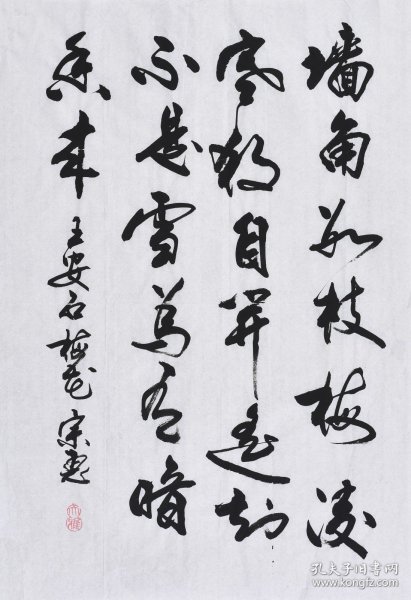 墙角数枝梅凌
寒独自开遥知
不是雪为有暗
香来 王安石梅花 宗惠
孔夫子旧书网
www.kongfz.com